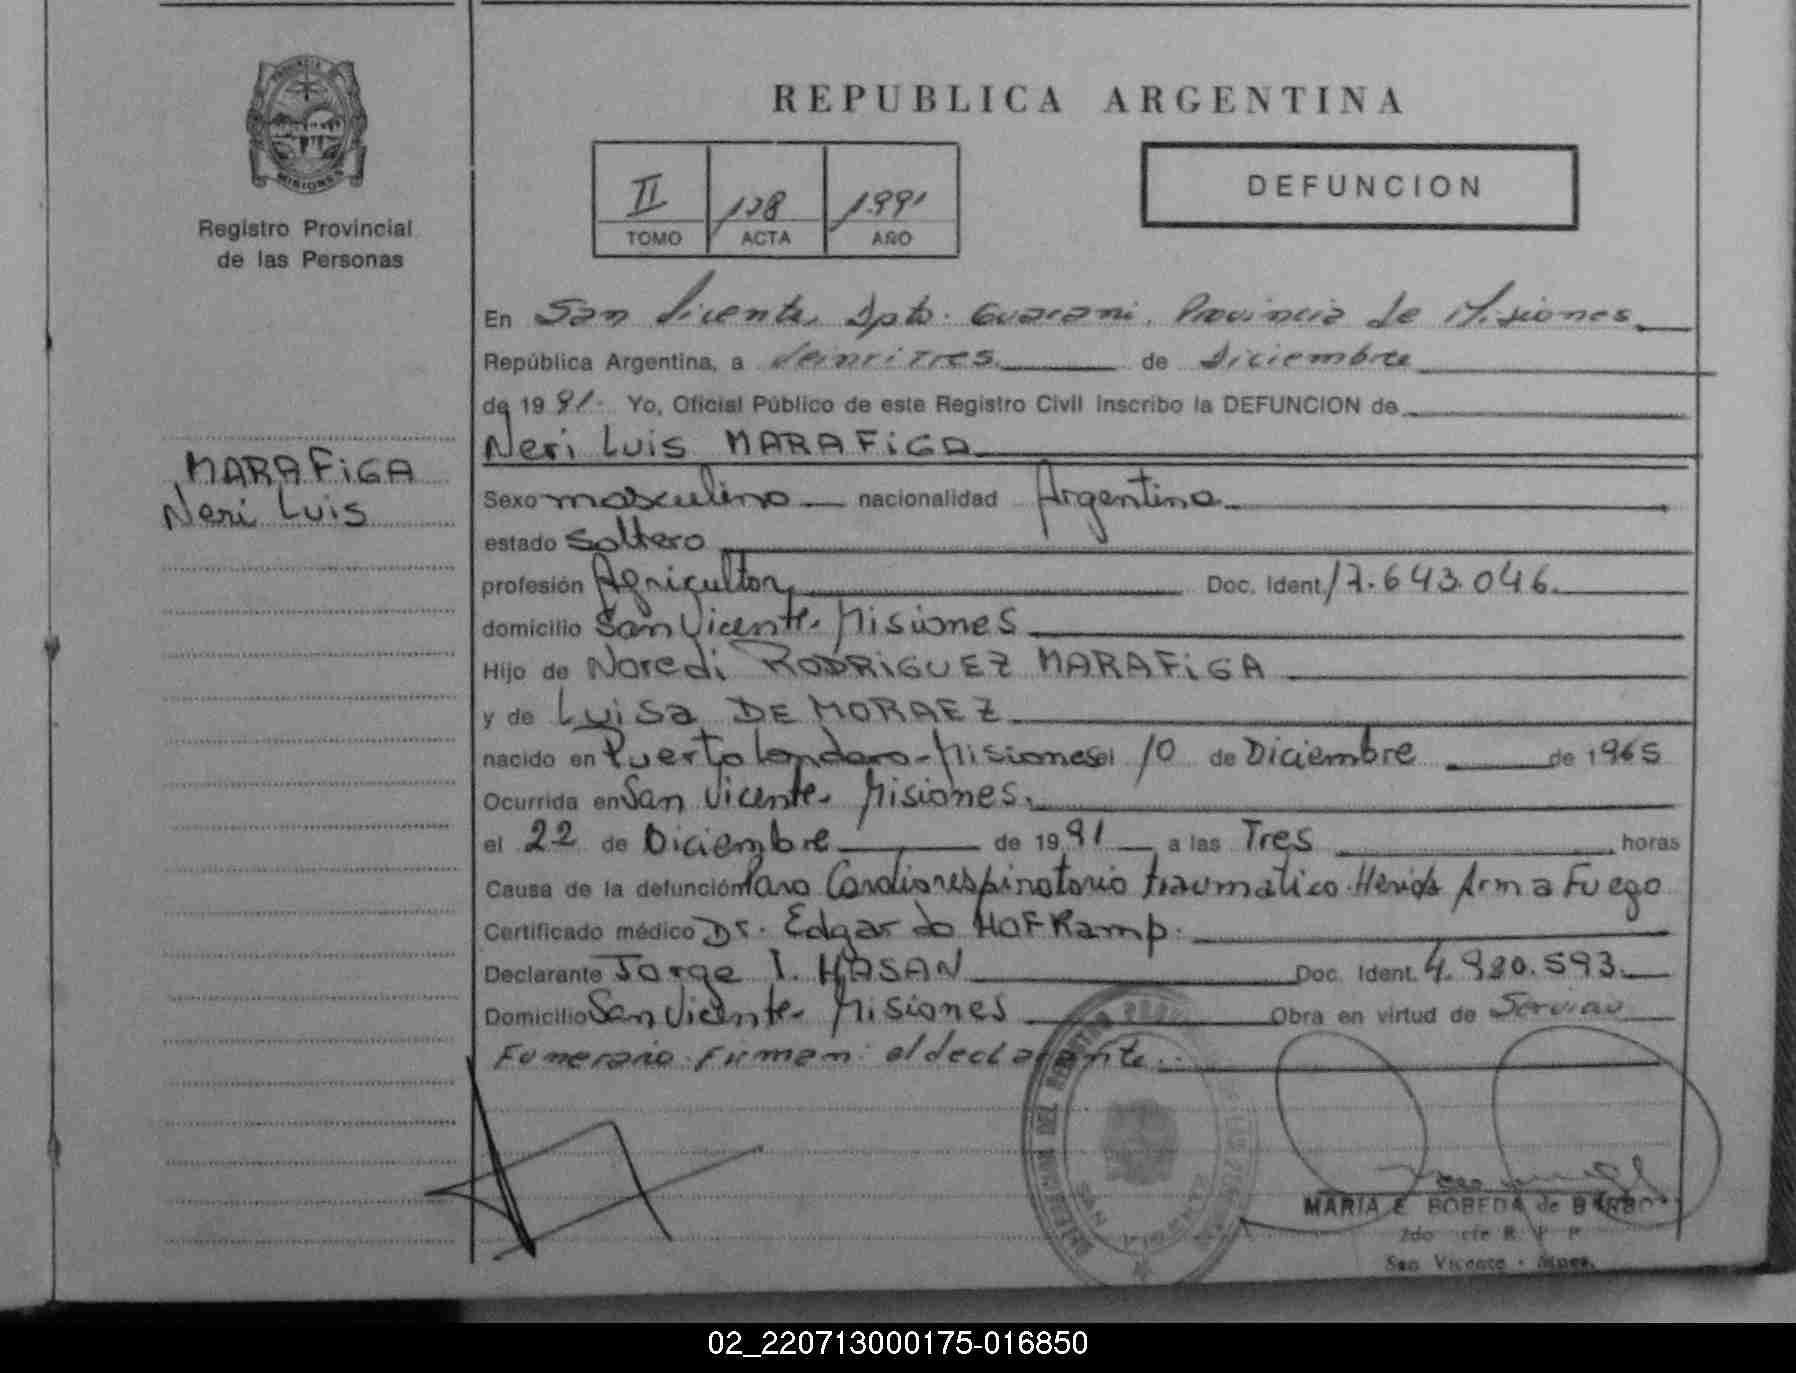 PROVINCIA
MISIONES
Registro Provincial
de las Personas
MARAFiGA
Neri Luis
REPUBLICA ARGENTINA
II 128 1991
TOMO ACTA AÑO
DEFUNCION
En San Vicente, Dpto. Guarani, Provincia de Misiones
República Argentina, a Veintitres de Diciembre
de 1991. Yo, Oficial Público de este Registro Civil Inscribo la DEFUNCION de
Neri Luis MARAFiGA
Sexo masculino nacionalidad Argentina
estado Soltero
profesión Agricultor Doc. Ident. 17.643.046.
domicilio San Vicente. Misiones
Hijo de Noredi RODRiGUEZ MARAFiGA
y de Luisa DE MORAEZ
nacido en Puerto Londero-Misiones el 10 de Diciembre de 1965
Ocurrida en San Vicente. Misiones.
el 22 de Diciembre de 1991 a las Tres horas
Causa de la defunción Paro Cardiorespiratorio traumatico. Herida Arma Fuego
Certificado médico Dr. Edgardo HOFKamp.
Declarante Jorge I. HASAN Doc. Ident. 4.980.593.
Domicilio San Vicente. Misiones Obra en virtud de Servicio
Funerario. Firman: el declarante.
DEL REGISTRO
SAN
MARIA E. BOBEDA de
San Vicente - Mnes.
02_220713000175-016850